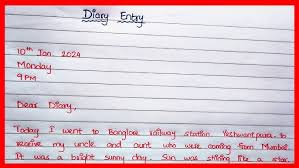 Diary Entry
10th Jan. 2024
Monday
9 PM
Dear Diary,
Today I went to Banglore railway station, Yeshwantpura. to
receive my uncle and aunt who were coming from Mumbai.
It was a bright sunny day. Sun was shining like a star